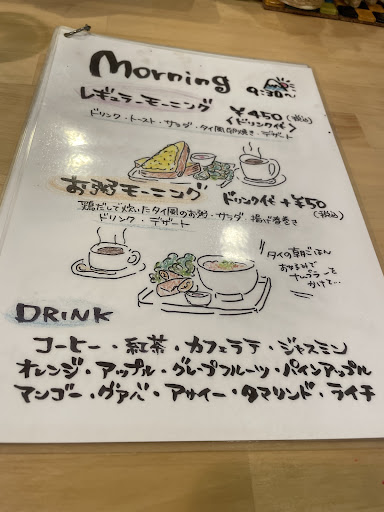 Morning
9:30〜
レギュラーモーニング ¥450(税込)
〈ドリンク代〉
ドリンク・トースト・サラダ・タイ風卵焼き・デザート
お粥モーニング ドリンク代+¥50
(税込)
鶏だしで炊いたタイ風のお粥・サラダ・揚げ春巻き
ドリンク・デザート
タイの朝ごはん
おなじみで
ナンプラーを
かけて…
DRINK
コーヒー・紅茶・カフェラテ・ジャスミン
オレンジ・アップル・グレープフルーツ・パインアップル
マンゴー・グァバ・アサイー・タマリンド・ライチ